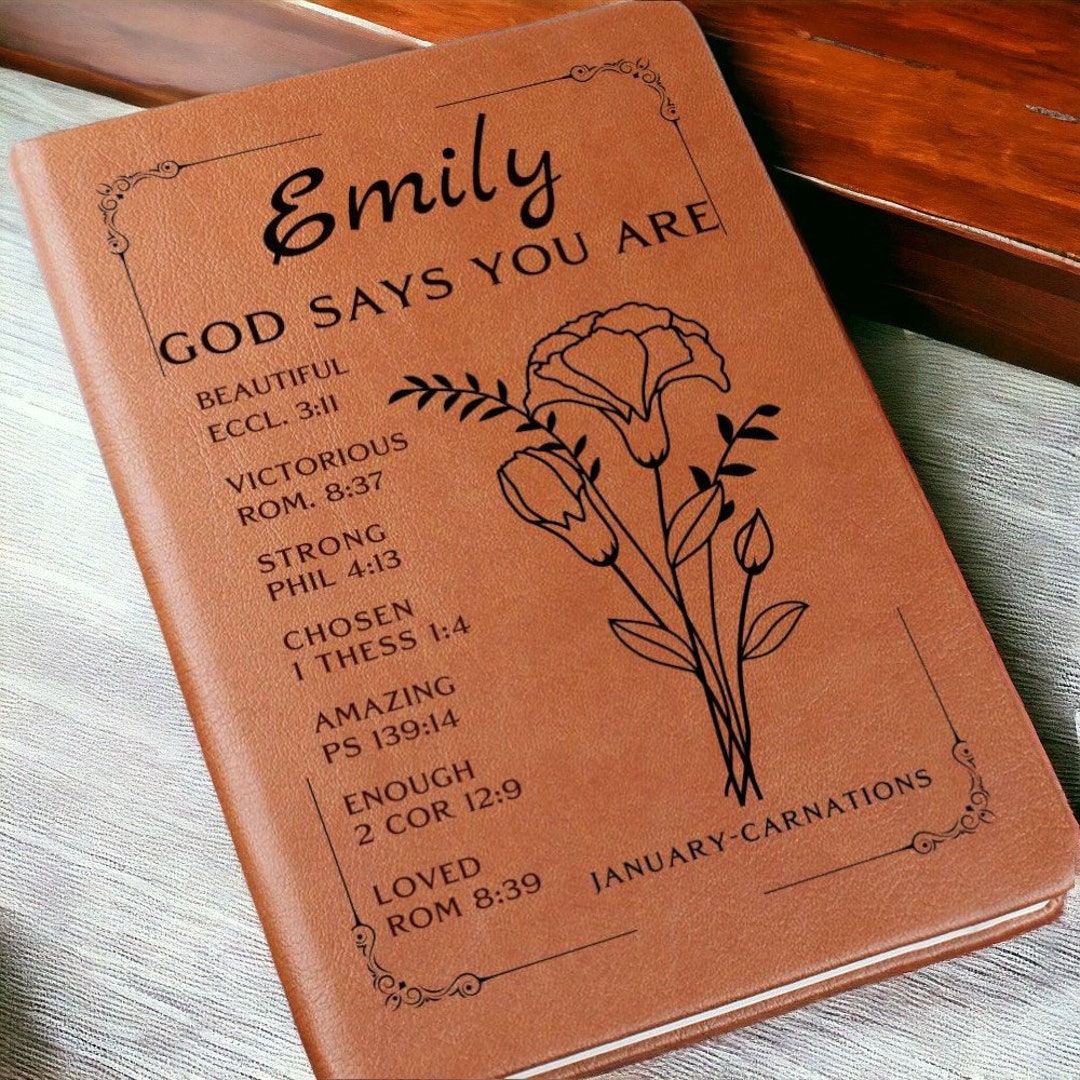 Emily
GOD SAYS YOU ARE
BEAUTIFUL
ECCL. 3:11
VICTORIOUS
ROM. 8:37
STRONG
PHIL 4:13
CHOSEN
1 THESS 1:4
AMAZING
PS 139:14
ENOUGH
2 COR 12:9
LOVED
ROM 8:39
JANUARY-CARNATIONS